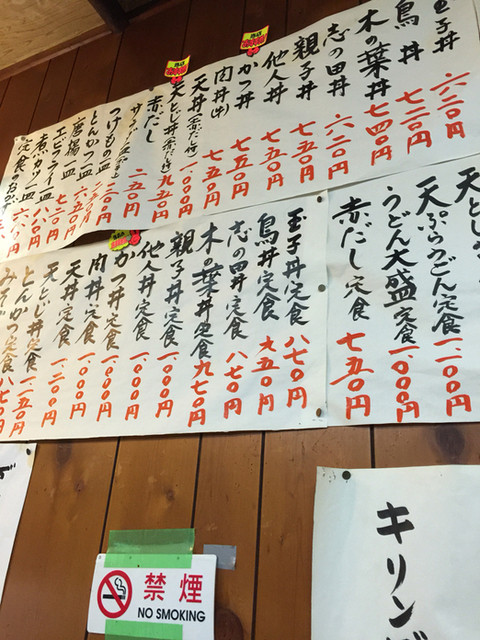 玉子丼 六二〇円
鳥丼 七二〇円
木の葉丼 七四〇円
志の田丼 六二〇円
親子丼 七五〇円
他人丼 七五〇円
かつ丼 七五〇円
肉丼(牛) 七五〇円
天丼(赤だし付) 一、〇〇〇円
天とじ丼(赤だし付) 九五〇円
赤だし 二五〇円
サラダ
つけもの皿 二〇〇円
とんかつ一皿
唐揚一皿 七五〇円
エビフライ一皿 七〇〇円
煮カツ一皿 八〇〇円
定食
天とじ
天ぷらうどん定食 一、一〇〇円
うどん大盛定食 一、〇〇〇円
赤だし定食 七五〇円
玉子丼定食 八七〇円
鳥丼定食 九五〇円
志の田丼定食 八七〇円
木の葉丼定食 九七〇円
親子丼定食 一、〇〇〇円
他人丼定食 一、〇〇〇円
かつ丼定食 一、〇〇〇円
肉丼定食 一、〇〇〇円
天丼定食 一、二〇〇円
天とじ丼定食 一、一五〇円
とんかつ定食
みそ 定食 八七〇円
キリン
禁煙
NO SMOKING